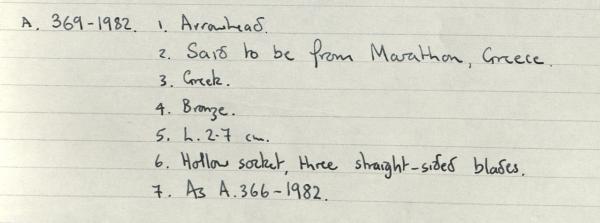 A. 369-1982. 1. Arrowhead.
2. Said to be from Marathon, Greece.
3. Greek.
4. Bronze.
5. L. 2.7 cm.
6. Hollow socket, three straight-sided blades.
7. As A.366-1982.